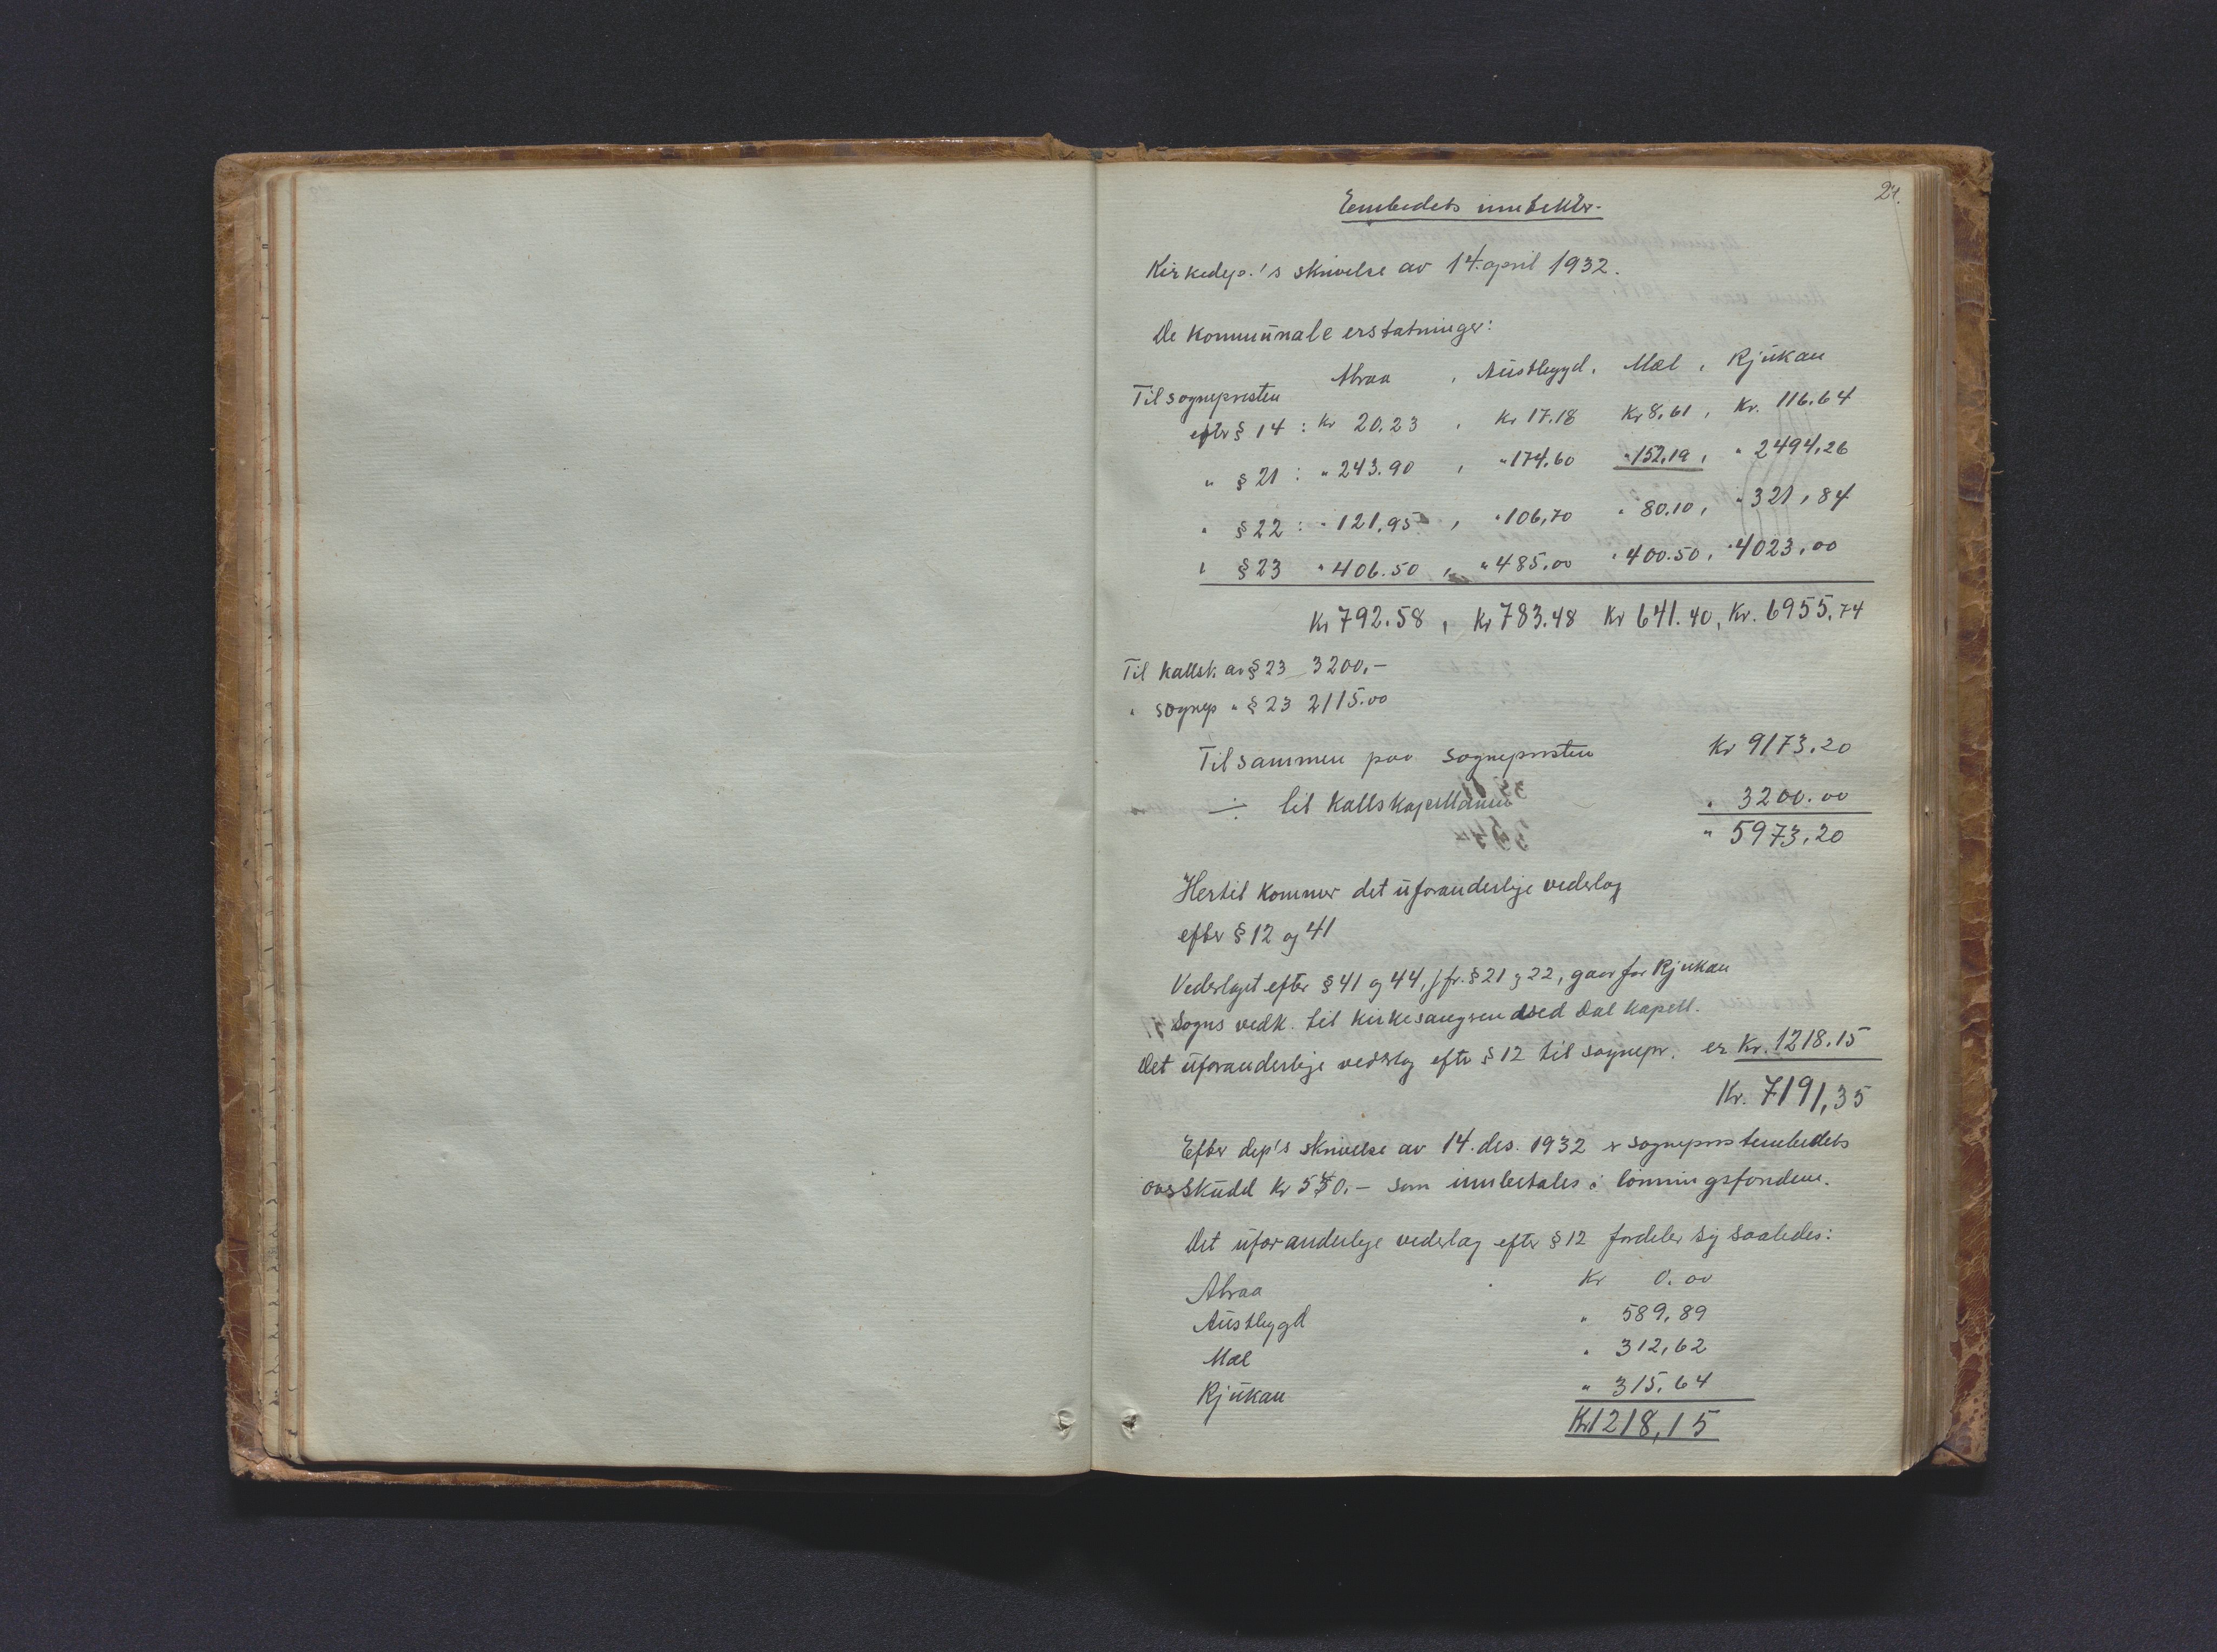 21.
Embedets inntekter.
Kirkedep.'s skrivelse av 14. april 1932.
De kommunale erstatninger:
Atraa , Austbygd , Mæl , Rjukan
Til sognepresten
efter § 14 : Kr 20.23 , Kr 17.18 Kr 8.61 , Kr. 116.64
" § 21 : " 243.90 , " 174.60 " 152,19 , " 2494,26
" § 22 : " 121.95 , " 106,70 " 80.10 , " 321,84
" § 23 " 406.50 , " 485.00 " 400.50 , " 4023,00
Kr 792.58 , Kr 783.48 Kr 641.40 , Kr. 6955,74
Til kallsk. av § 23 3200,-
" sognep " § 23 2115.00
Tilsammen paa sognepresten Kr 9173,20
÷ til kallskapellanen " 3200.00
" 5973,20
Hertil kommer det uforanderlige vederlag
efter § 12 og 41
Vederlaget efter § 41 og 44, jfr. § 21 og 22, gaar for Rjukan
Sogns vedk. til kirkesangeren ved Dal kapell.
Det uforanderlige vederlag efter § 12 til sognepr. er Kr. 1218.15
Kr. 7191,35
Efter dep's skrivelse av 14. des. 1932 er sogneprestembedets
overskudd Kr - som innbetales i lønningsfondene.
Det uforanderlige vederlag efter § 12 fordeler sig saaledes:
Atraa Kr 0.00
Austbygd " 589,89
Mæl " 312,62
Rjukan " 315,64
Kr 1218,15